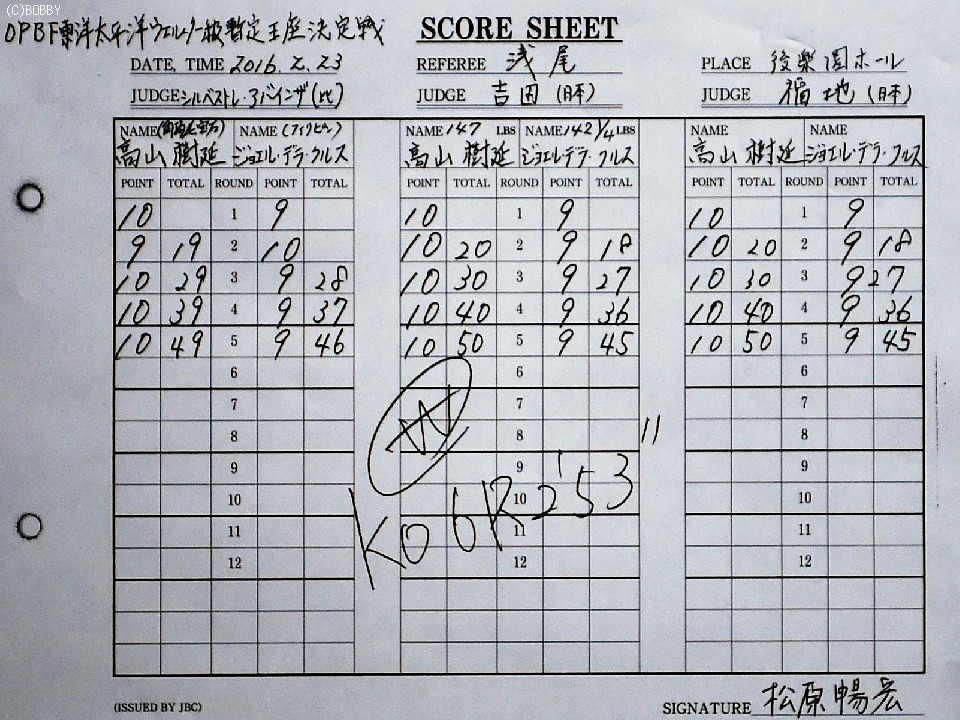 (C)BOBBY
OPBF東洋太平洋ウェルター級暫定王座決定戦
SCORE SHEET
DATE, TIME 2016. 2. 23 REFEREE 浅尾 PLACE 後楽園ホール
JUDGE シルベストレ・アバインザ(比) JUDGE 吉田(日本) JUDGE 福地(日本)
NAME (角海老宝石) NAME (フィリピン) NAME 147 LBS NAME 142 1/4 LBS NAME NAME
高山樹延 ジョエル・デラ・クルス 高山樹延 ジョエル・デラ・クルス 高山樹延 ジョエル・デラ・クルス
POINT TOTAL ROUND POINT TOTAL POINT TOTAL ROUND POINT TOTAL POINT TOTAL ROUND POINT TOTAL
10 1 9 10 1 9 10 1 9
9 19 2 10 10 20 2 9 18 10 20 2 9 18
10 29 3 9 28 10 30 3 9 27 10 30 3 9 27
10 39 4 9 37 10 40 4 9 36 10 40 4 9 36
10 49 5 9 46 10 50 5 9 45 10 50 5 9 45
6 6 6
7 7 7
W
8 8 8
9 9 9
KO 6R 2'53"
10 10 10
11 11 11
12 12 12
(ISSUED BY JBC) SIGNATURE 松原暢宏